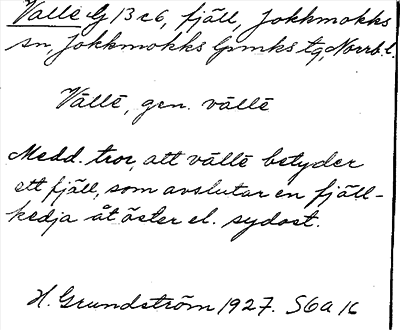 Valle G 13 c6, fjäll, Jokkmokks
sn, Jokkmokks lpmks tg, Norrb. l.
Vāllē, gen. vāllē
Medd. tror, att vāllē betyder
ett fjäll, som avslutar en fjäll-
kedja åt öster el. sydost.
H. Grundström 1927. S6a 16